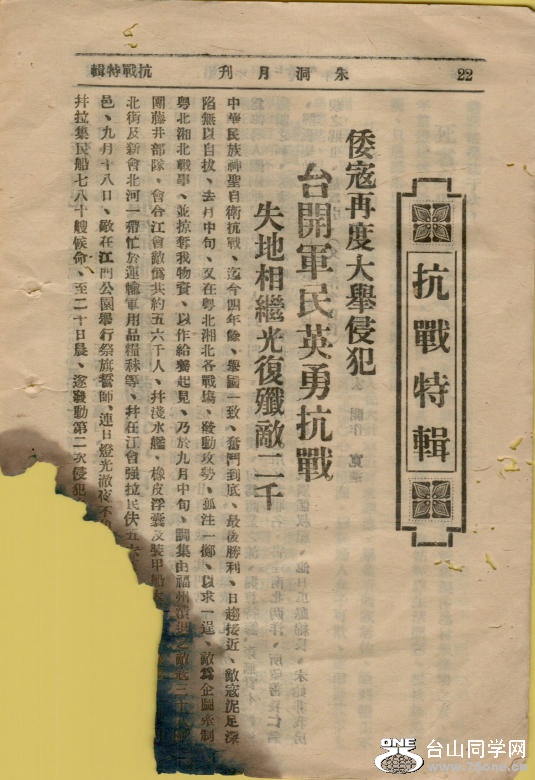 22
朱洞月刊
抗戰特輯
抗戰特輯
倭寇再度大舉侵犯
台開軍民英勇抗戰
失地相繼光復殲敵二千
中華民族神聖自衛抗戰、迄今四年餘、舉國一致、奮鬥到底、最後勝利、日趨接近、敵寇泥足深
陷無以自拔、去月中旬、又在粵北湘北各戰塲、發動攻勢、孤注一擲、以求一逞、敵爲企圖牽制
粵北湘北戰事、並掠奪我物資、以作給養起見、乃於九月中旬、調集由福州潰退之敵寇三十八
團藤井部隊、會合江會敵僞共約五六千人、幷淺水艦、橡皮浮囊及裝甲船
北街及新會北河一帶忙於運輸軍用品糧秣等、幷在江會强拉民伕五六
邑、九月十八日、敵在江門公園舉行祭旗誓師、連日燈光澈夜不
幷拉集民船七八十艘候命、至二十日晨、遂發動第二次侵犯
ONE
台山同学网
www.76one.cn